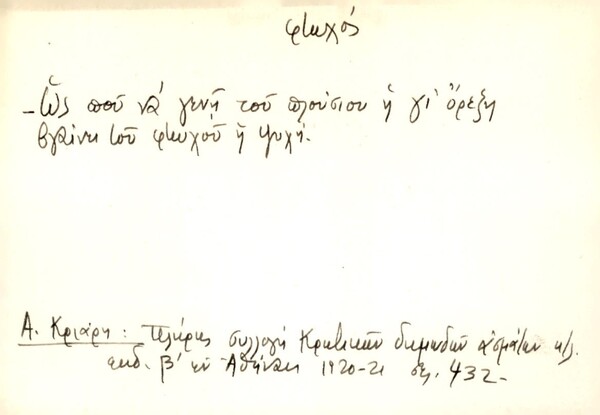 φτωχός
- Ὥς ποῦ νά γενῆ τοῦ πλούσιου ἡ γι' ὄρεξη
βγαίνει τοῦ φτωχοῦ ἡ ψυχή.
Α. Κριάρη: Πλήρης συλλογή Κρητικῶν δημωδῶν ᾀσμάτων κτλ.
ἐκδ. β' ἐν Ἀθήναις 1920-21 σελ. 432-